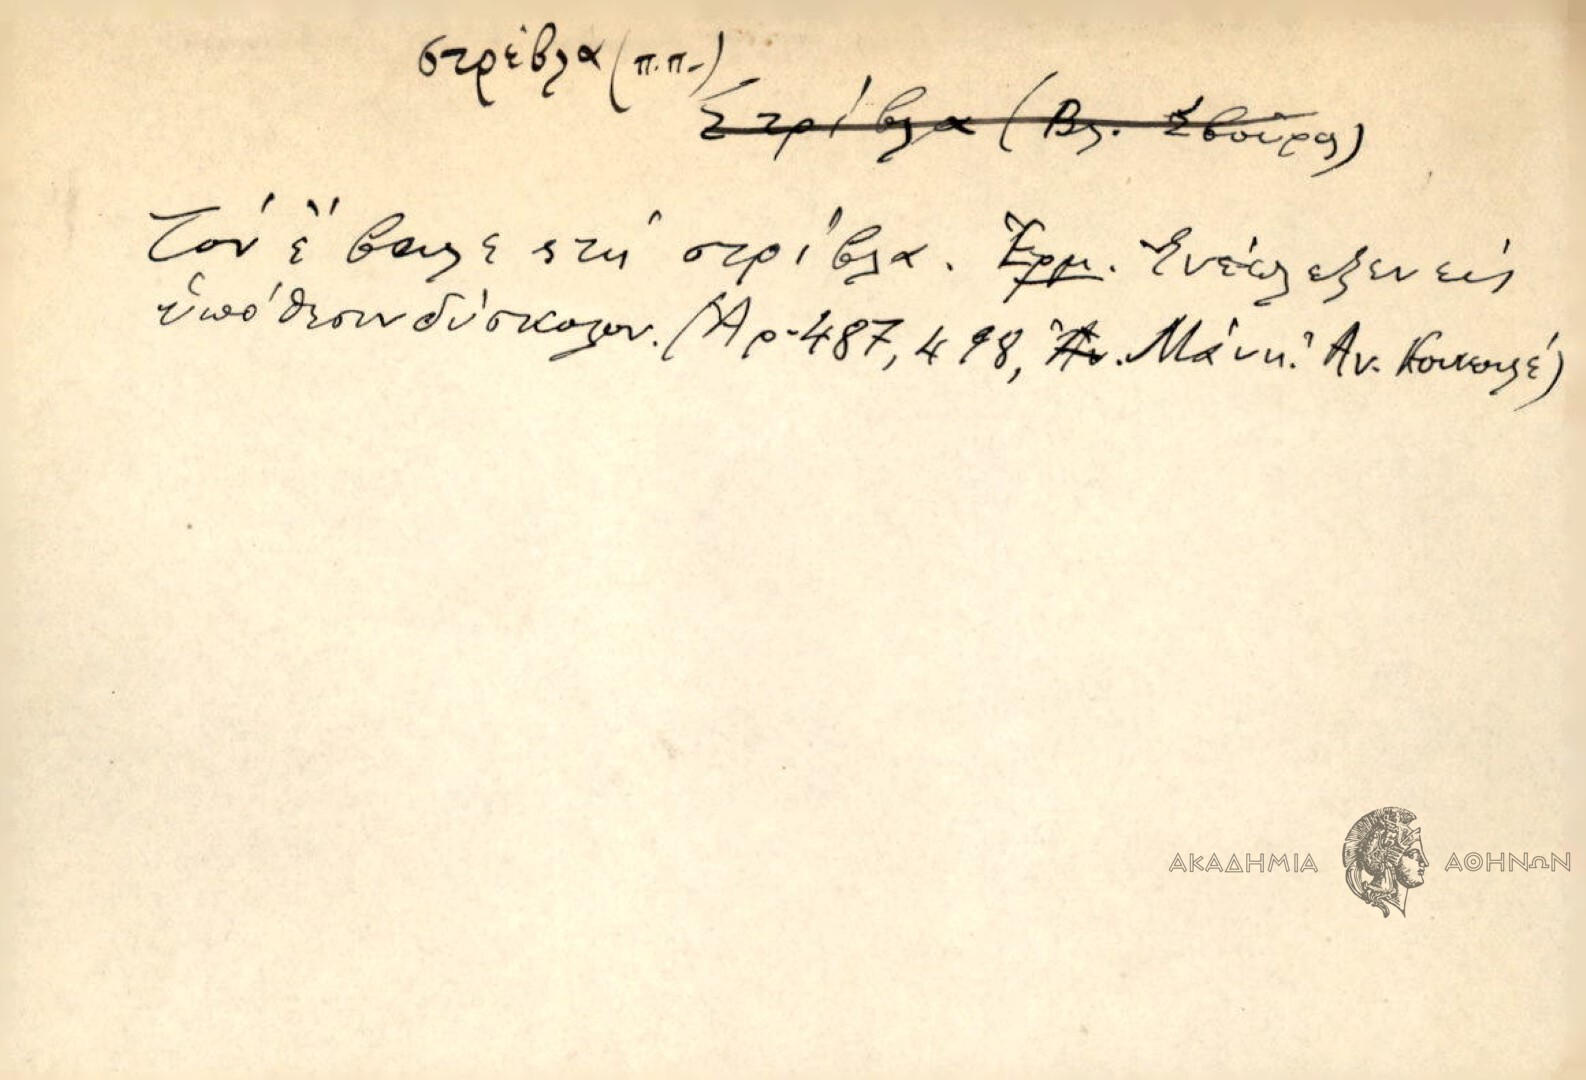 στρέβλα (π.π.)
Στρίβλα (Βλ. Σβούρα)
Τὸν ἔβαλε στὴ στρίβλα. Ἑρμ. Ἐνέπλεξεν εἰς
ὑπόθεσιν δύσκολον. (Ἀρ. 487, 498, Ἀν. Μάνη. Ἀν. Κουκουλέ)
ΑΚΑΔΗΜΙΑ ΑΘΗΝΩΝ